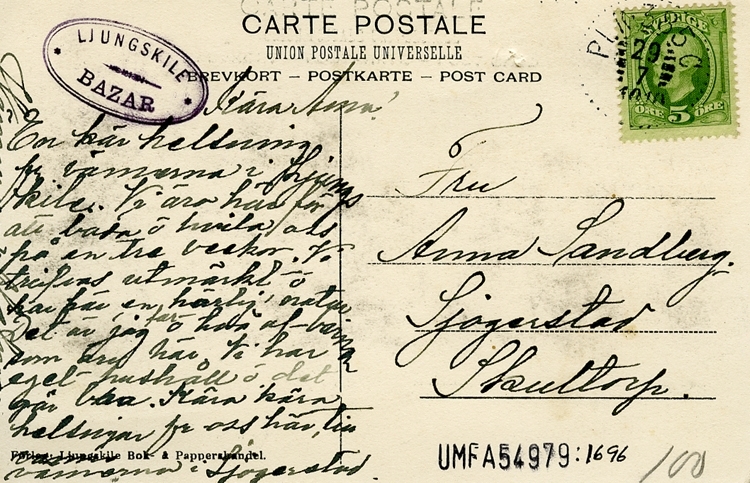 CARTE POSTALE
UNION POSTALE UNIVERSELLE
BREVKORT – POSTKARTE – POST CARD
LJUNGSKILE
BAZAR
SVERIGE
ÖRE 5 ÖRE
29
7
Kära Anna!
En kär helsning
fr. vännerna i Ljungs
kile. Vi äro här för
att bada ö hvila oss
på en tre veckor. Vi
trifvas utmärkt ö
har här en härlig natur
det är jag ö
som äro här. Vi har
eget hushåll ö det
går bra. Kära kära
helsningar fr oss här, till
vännerna i Sjögerstad.
Fru
Anna Sandberg.
Sjögerstad
Skultorp.
Förlag: Ljungskile Bok- & Pappershandel.
UMFA54979:1696
100